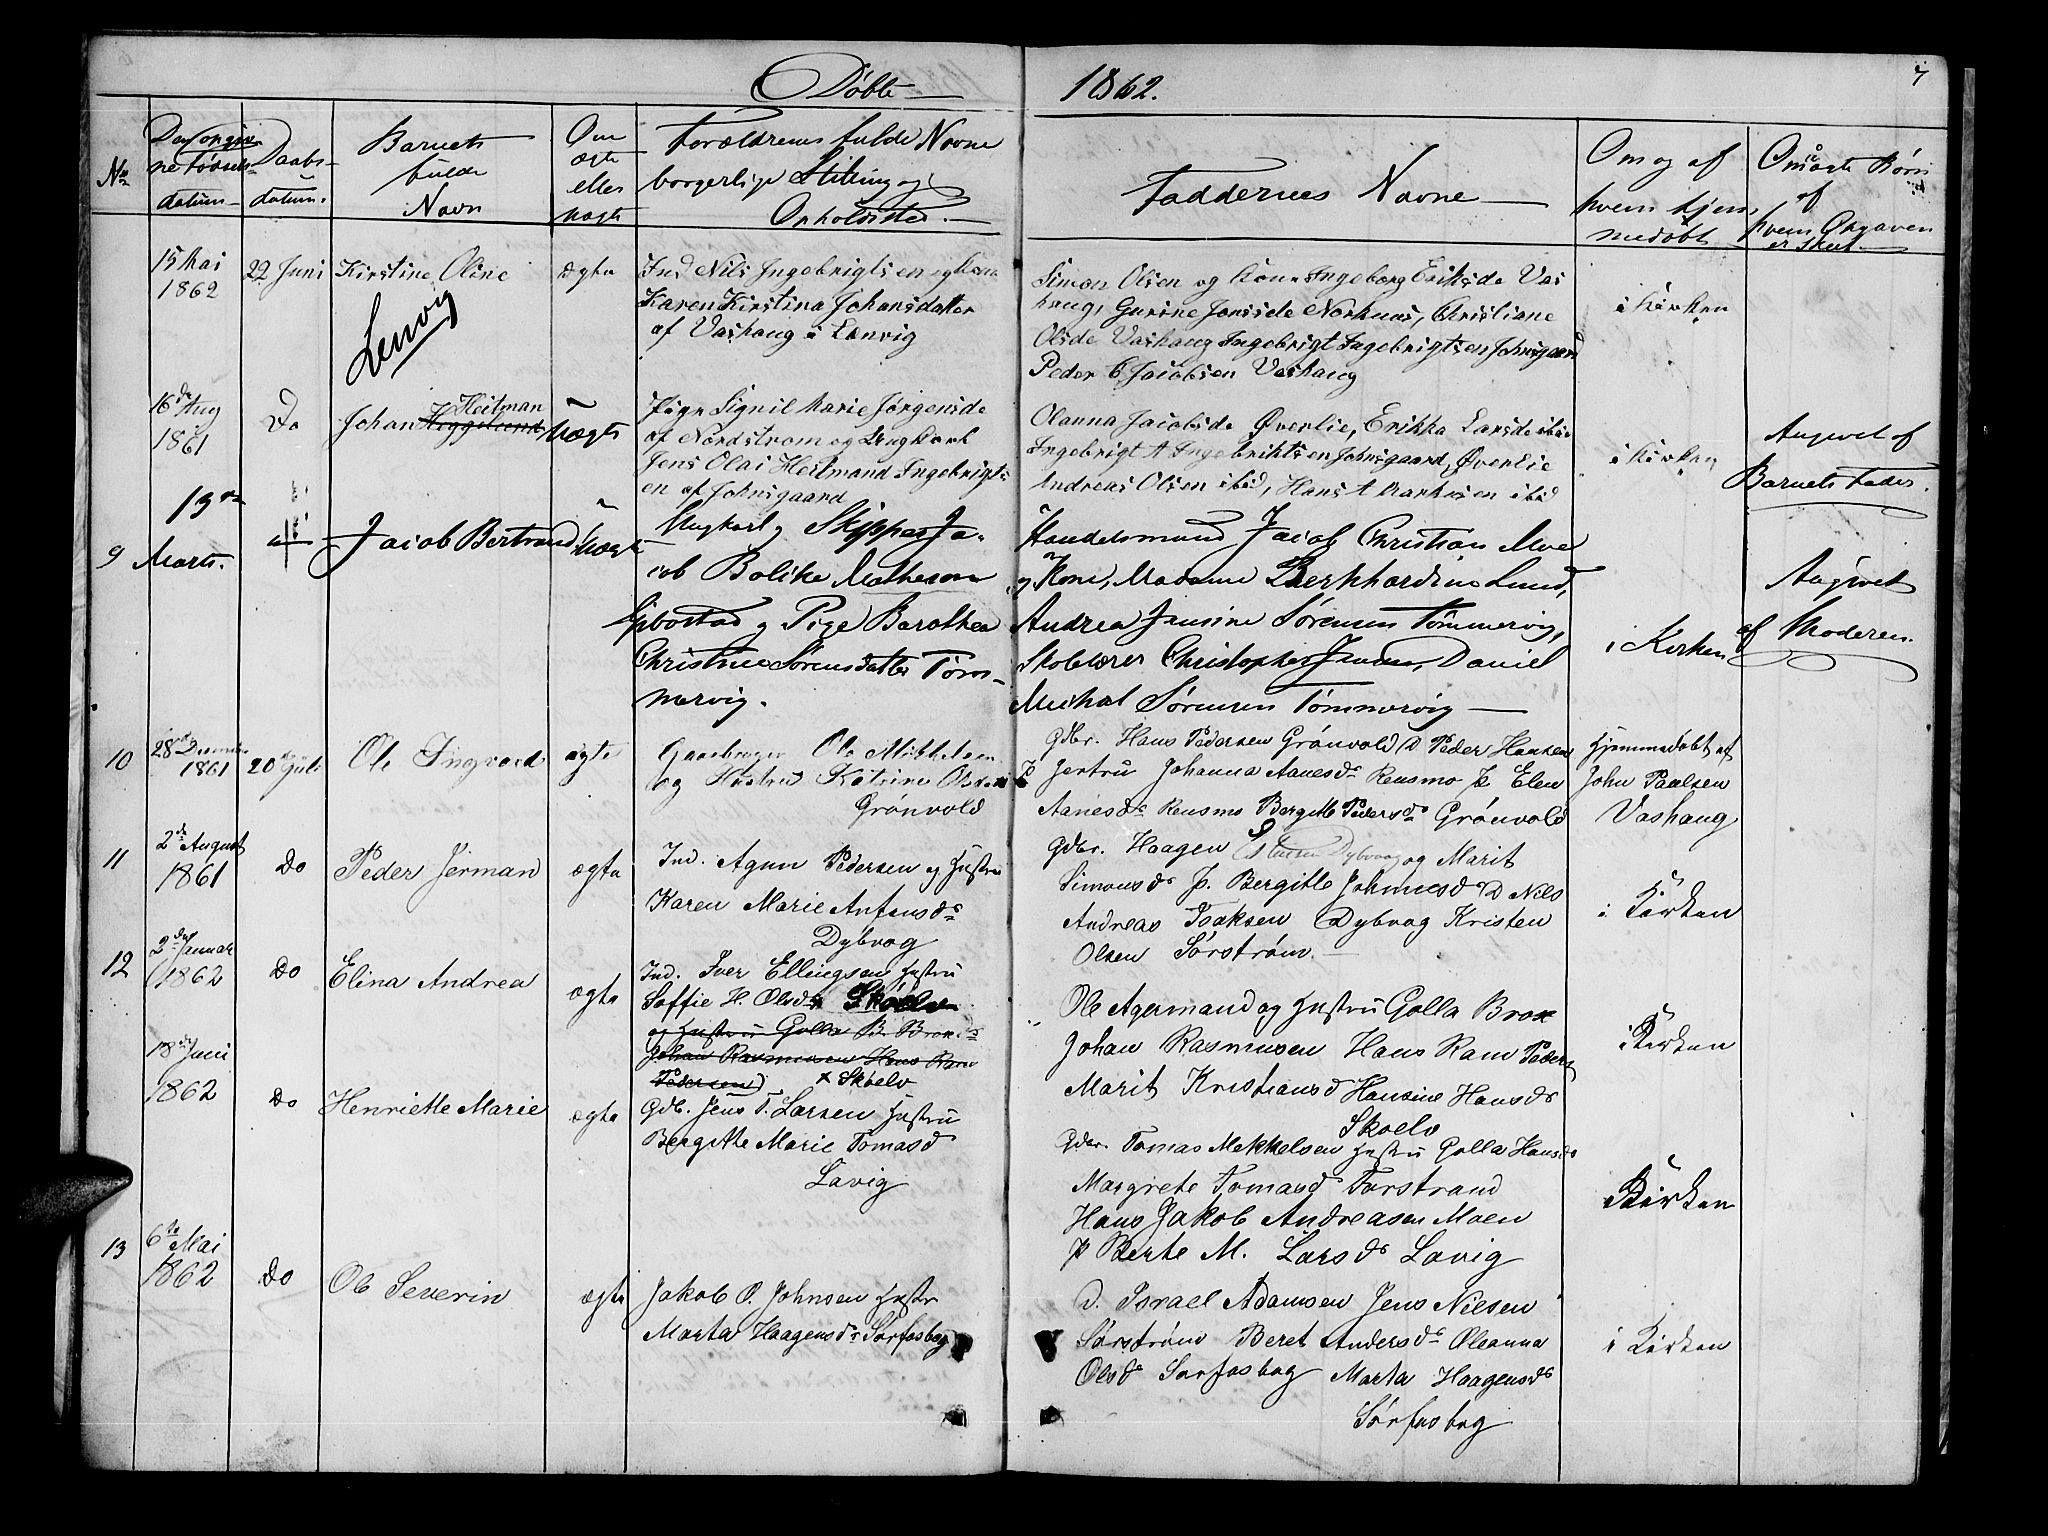 Døbte
1862.
7
No
Den opgivne Fødselsdatum
Daabsdatum.
Barnets fulde Navn
Om ægte eller uægte
Forældrenes fulde Navne borgerlige Stilling og Opholdsted.
Faddernes Navne
Om og af hvem hjemmedøbt
Om uægte Børn af hvem Opgaven er skeet
15 Mai 1862
22 Juni
Kirstine Oline
Lenvig
ægte
Ind Nils Ingebrigtsen og Kone
Karen Kirstina Johansdatter
af Vashaug i Lenvig
Simon Olsen og Kone Ingeborg Eriksda Vas
haug, Gurine Jonsda Norknæs, Christiane
Olsda Vashaug Ingebrigt Ingebrigtsen Johnsgaard
Peder C Jacobsen Vashaug
i Kirken
16de Aug 1861
Do
Johan Heitman Heggelund
Uægte
Pige Signil Marie Jørgensda
af Nordstrøm og Ungkarl
Jens Olai Heitmand Ingebrigts
en af Johnsgaard
Olanna Jacobsda Øverlie, Erikka Larsda ibid
Ingebrigt A Ingebriktsen Johnsgaard, Øverlie
Andreas Olsen ibid, Hans A Markusen ibid
i Kirken
Angivet af
Barnets Fader.
9
19de Marts.
Jacob Bertrand
Uægte
Ungkarl og Skipper Ja-
cob Bolike Matheson
Gibostad og Pige Barothea
Christine Sørensdatter Tøm-
mervig.
Handelsmand Jacob Christian Moe
og Kone, Madame Berhhardine Lund,
Andrea Jensine Sørensen Tømmervig,
Skolelærer Christopher Jensen, Daniel
Michal Sørensen Tømmervig
i Kirken
Angivet
af Moderen.
10
28de December 1861
20de Juli
Ole Ingvard
ægte
Gaardbruger Ole Mikkelsen
og Hustru Katrine Olsda
Grønvold
Gdbr. Hans Pedersen Grønvold D Peder Hansen
Jertru Johanna Aanesda Rensmo P. Elen
Aanesda Rensmo Bergitte Pedersda Grønvold
Hjemmedøbt af
John Paulsen
Vashaug
11
2de August 1861
Do
Peder Jerman
ægte
Ind. Agun Pedersen og Hustru
Karen Marie Anfensda
Dybvag
Gdbr. Haagen Dybvaag og Marit
Simonsda P. Bergitte Johnnesda D Nils
Andreas Isaksen Dybvag Kristen
Olsen Sørstrøm.
i Kirken
12
2de Januar 1862
Do
Elina Andrea
ægte
Ind. Iver Ellingsen, Hustru
Saffie H. Olsda Skoelv
og Hustru Golla B. Brox
Johan Rasmusen Hans Ram
Pedersen) x Skoelv
Ole Agermand og Hustru Golla Brox
Johan Rasmusen Hans Ram Peders
Marit Kristiansd Hansine Hansda
Skoelv
i Kirken
18de Juni 1862
Do
Henriette Marie
ægte
Gdb. Jens T. Larsen Hustru
Bergitte Marie Tomasd
Lavig
Gdbr. Tomas Mekkelsen Hustru Golla Hansda
Margrete Tomasd Forstrand
Hans Jakob Andreasen Moen
P Berte M. Larsda Lavig
i Kirken
13
6te Mai 1862
Do
Ole Severin
ægte
Jakob O. Johnsen Hustr
Marta Haagensda Sørfosbog
D. Israel Adamsen Jens Nilsen
Sørstrøm Beret Andersda Oleanna
Olsda Sørfosbog Marta Haagensda
Sørfosbog
i Kirken